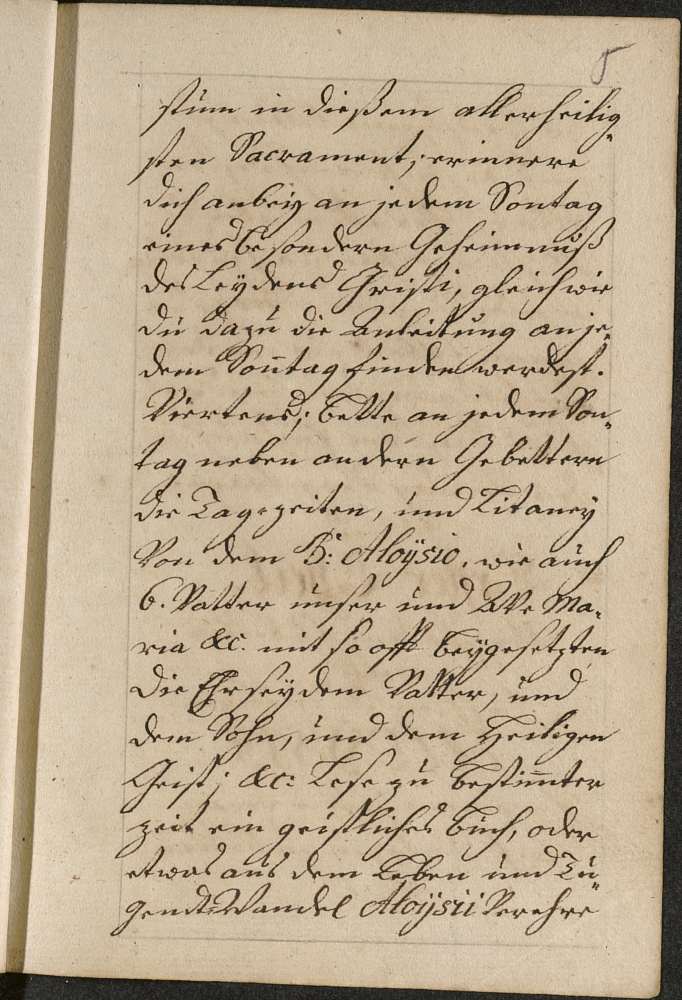 5
stum in dießem allerheilig„
sten Sacrament; erinnere
dich anbeÿ an jedem Sontag
eines besondern Geheimnuß
des Leÿdens Christi, gleich wie
du dazu die Anleitung an je„
dem Son̄tag finden werdest.
Viertens; bette an jedem Son„
tag neben andern Gebettern
die Tag-zeiten, und Litaneÿ
Von dem B: Aloÿsio, wie auch
6. Vatter unser und Ave Ma„
ria &c. mit so offt beÿgesetzten
die Ehr seÿ dem Vatter, und
dem Sohn, und dem Heiligen
Geist; &c: Lese zu bestim̄ter
zeit ein geistliches buch, oder
etwas aus dem Leben und Tu„
gendt-Wandel Aloÿsii Verehre